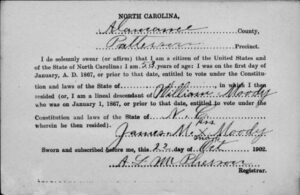 NORTH CAROLINA,
Alamance County,
Patterson Precinct.
I do solemnly swear (or affirm) that I am a citizen of the United States and
of the State of North Carolina: I am 53 years of age: I was on the first day of
January, A. D. 1867, or prior to that date, entitled to vote under the Constitu-
tion and laws of the State of in which I then
resided (or, I am a lineal descendant of William Moody
who was on January 1, 1867, or prior to that date, entitled to vote under the
Constitution and laws of the State of N. C
wherein he then resided).
James M. X Moody
his
mark
Sworn and subscribed before me, this 22 day of Oct 1902.
A L McPherson
Registrar.